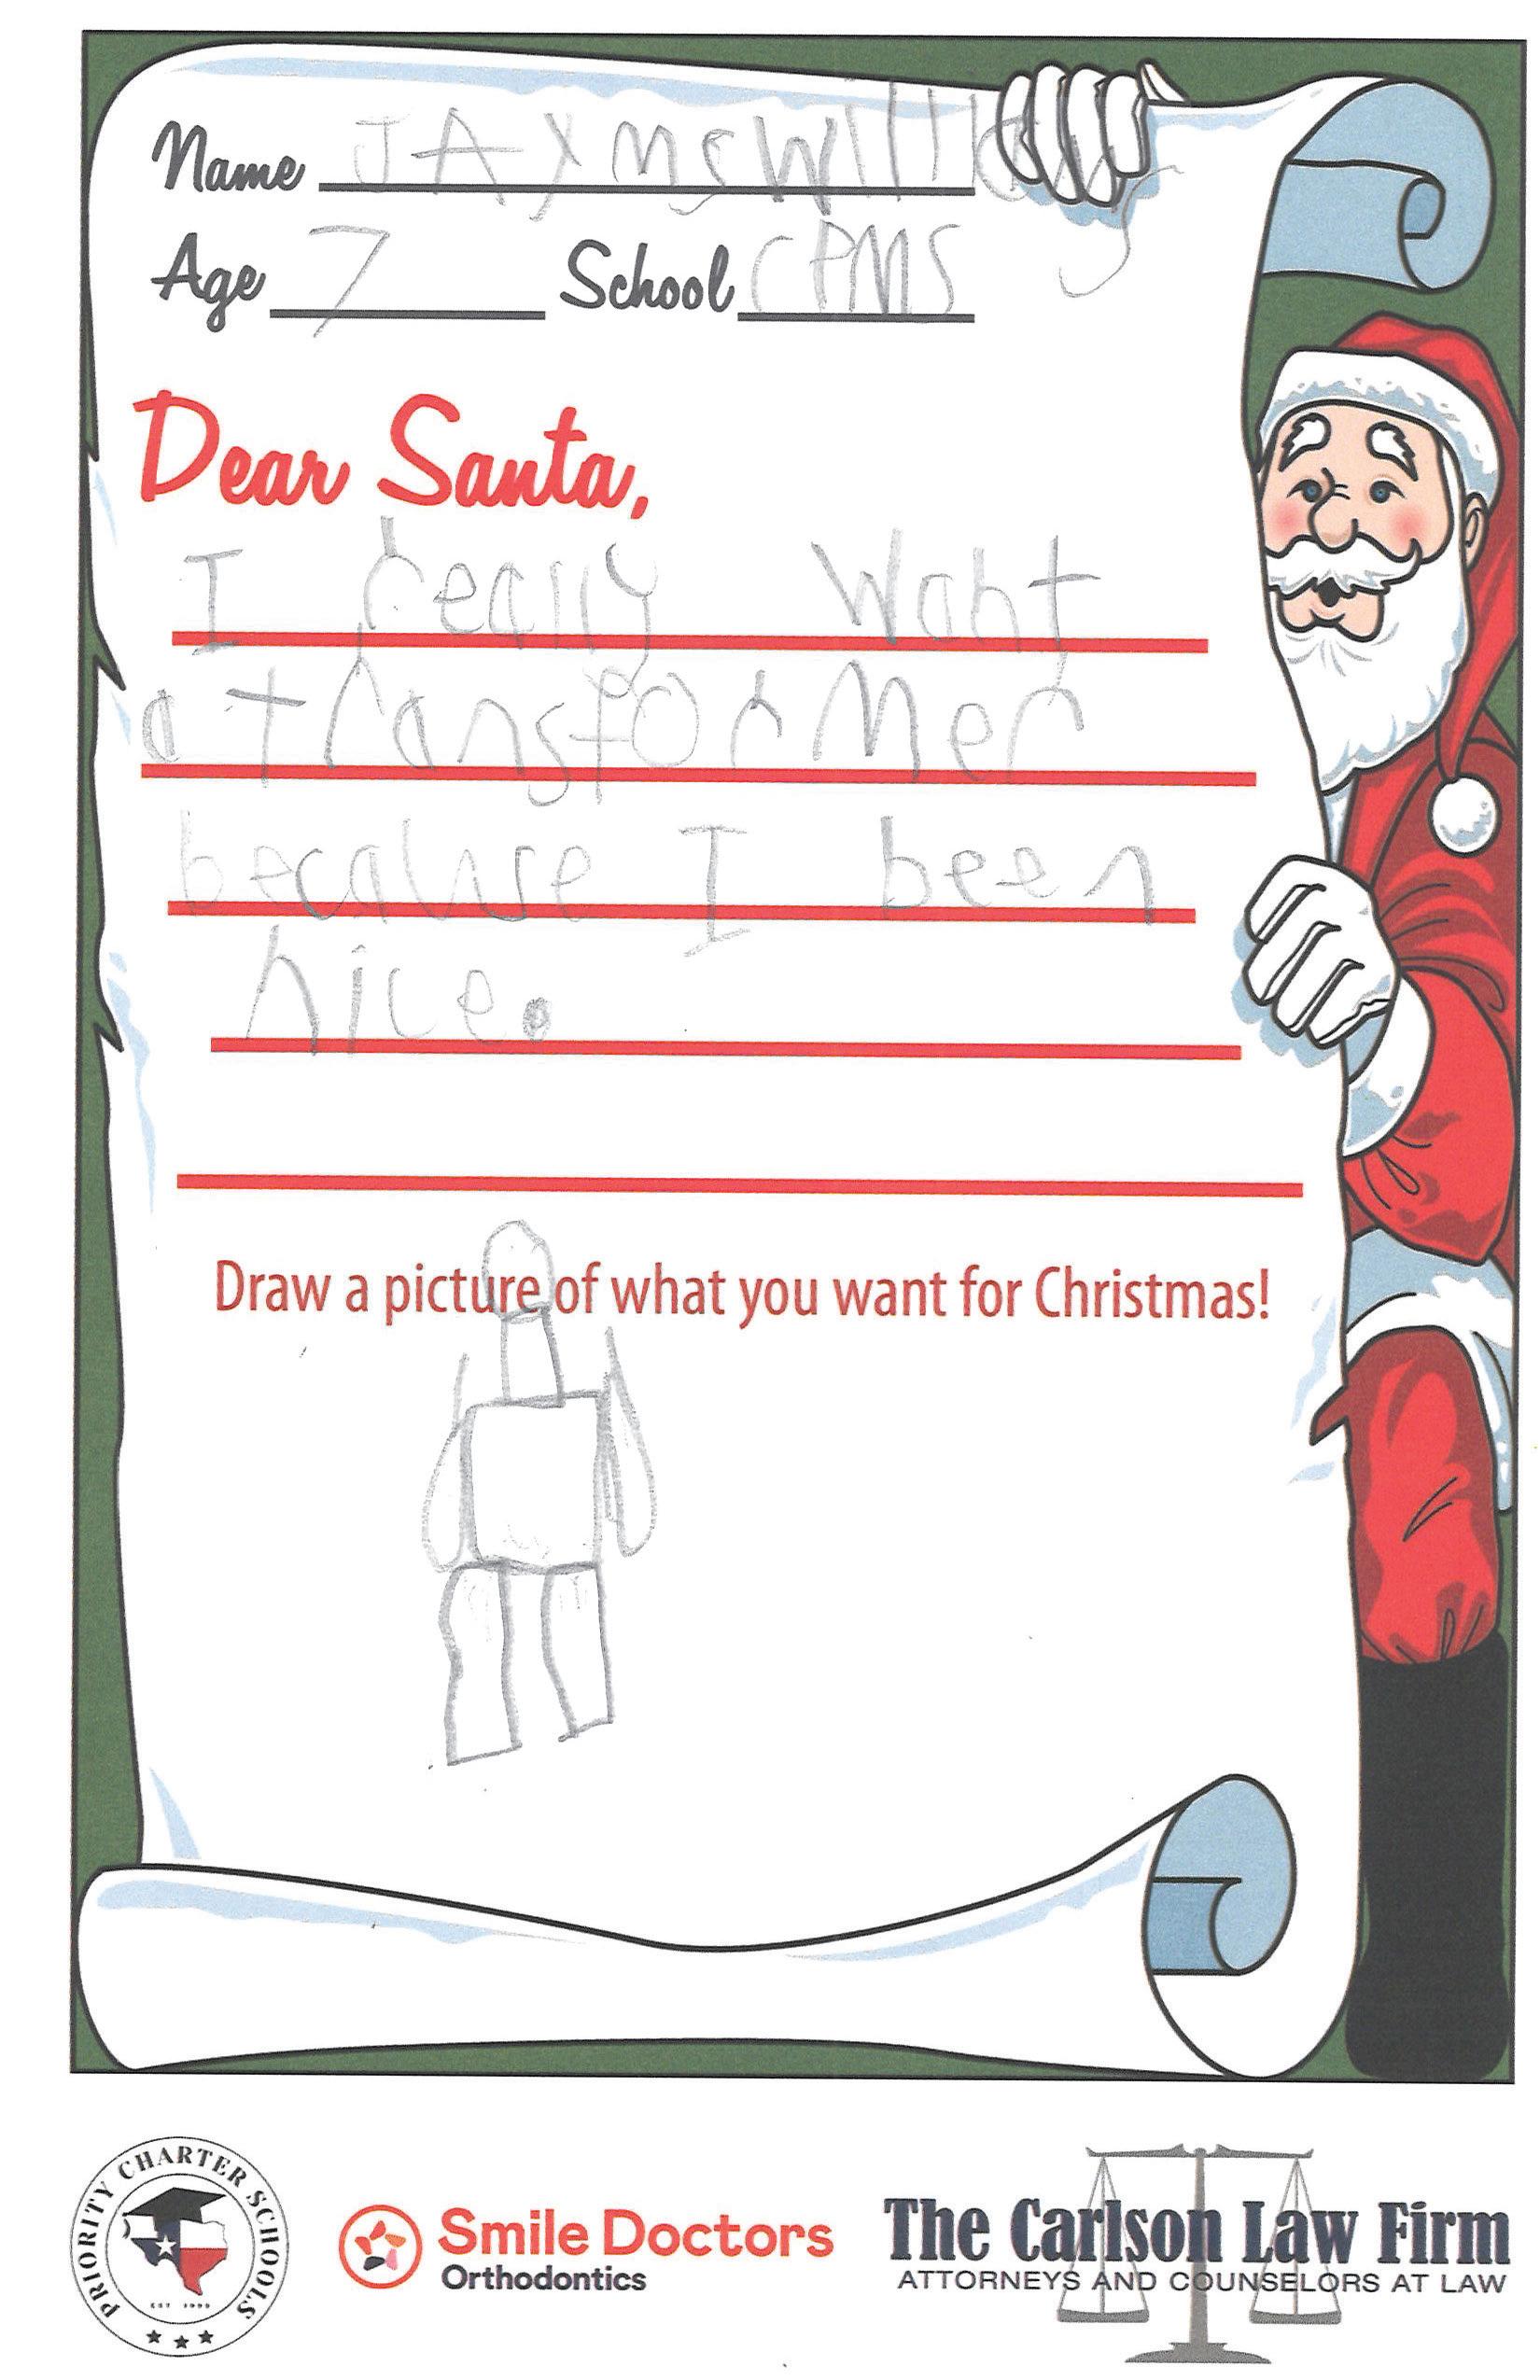 Name JAXMS Williams
Age 7 School CPMS
Dear Santa,
I really want
a transformer
because I been
nice.
Draw a picture of what you want for Christmas!
PRIORITY CHARTER SCHOOLS
EST 1999
Smile Doctors
Orthodontics
The Carlson Law Firm
ATTORNEYS AND COUNSELORS AT LAW